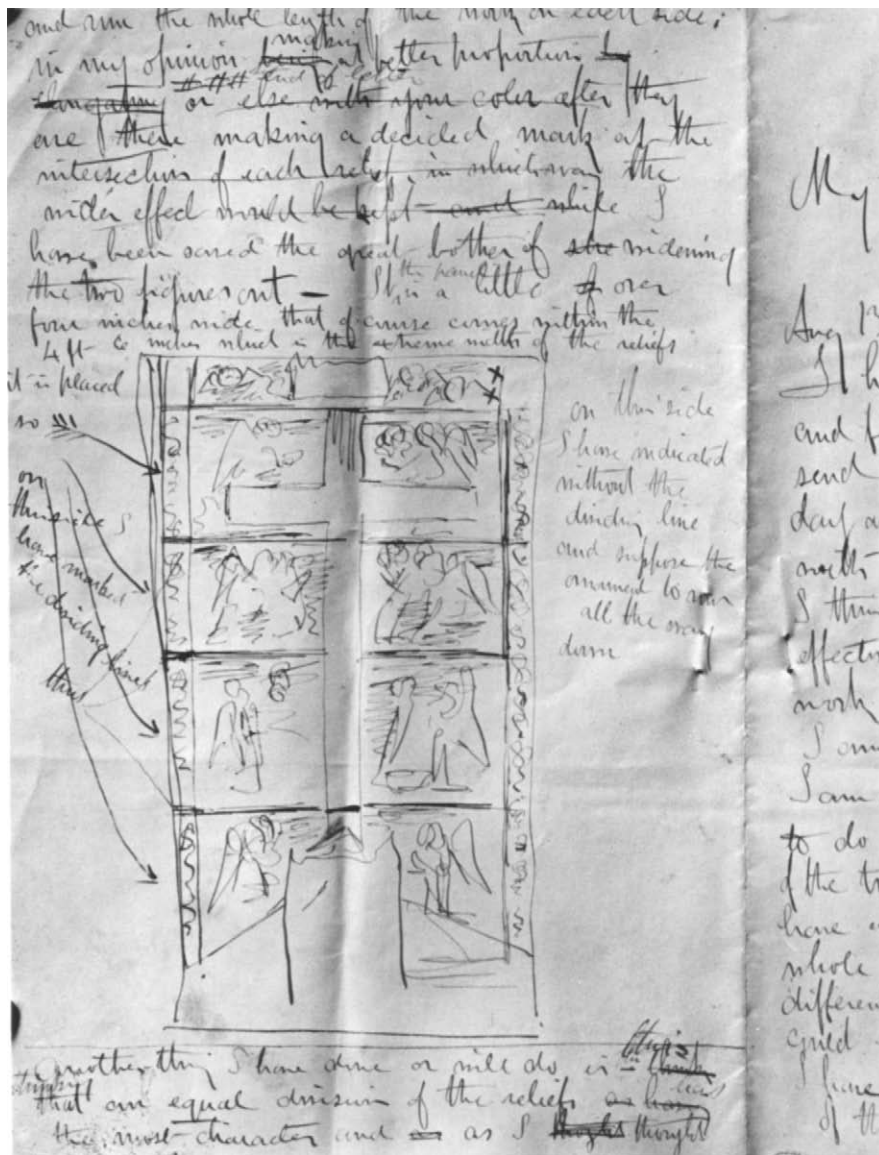 and run the whole length of the work on each side;
in my opinion being making a better proportion
elongating and or else with your color after they
are there making a decided mark at the
intersection of each relief, in which way the
wider effect would be kept and while I
have been saved the great bother of widening
the two figures out — It the panel is a little of over
four inches wide that of course comes within the
4 ft - 6 inches which is the extreme width of the reliefs
it is placed
so
on
this side I
have marked
the dividing lines
thus
on this side
I have indicated
without the
dividing line
and suppose the
ornament to run
all the way
down
Another thing I have done or will do is this
that an equal division of the reliefs has
the most character and as I thought thought
My
Aug
I h
and f
send
day a
with
I thin
effectiv
work
I am
I am
to do
of the tr
have
whole
differen
I have
of th